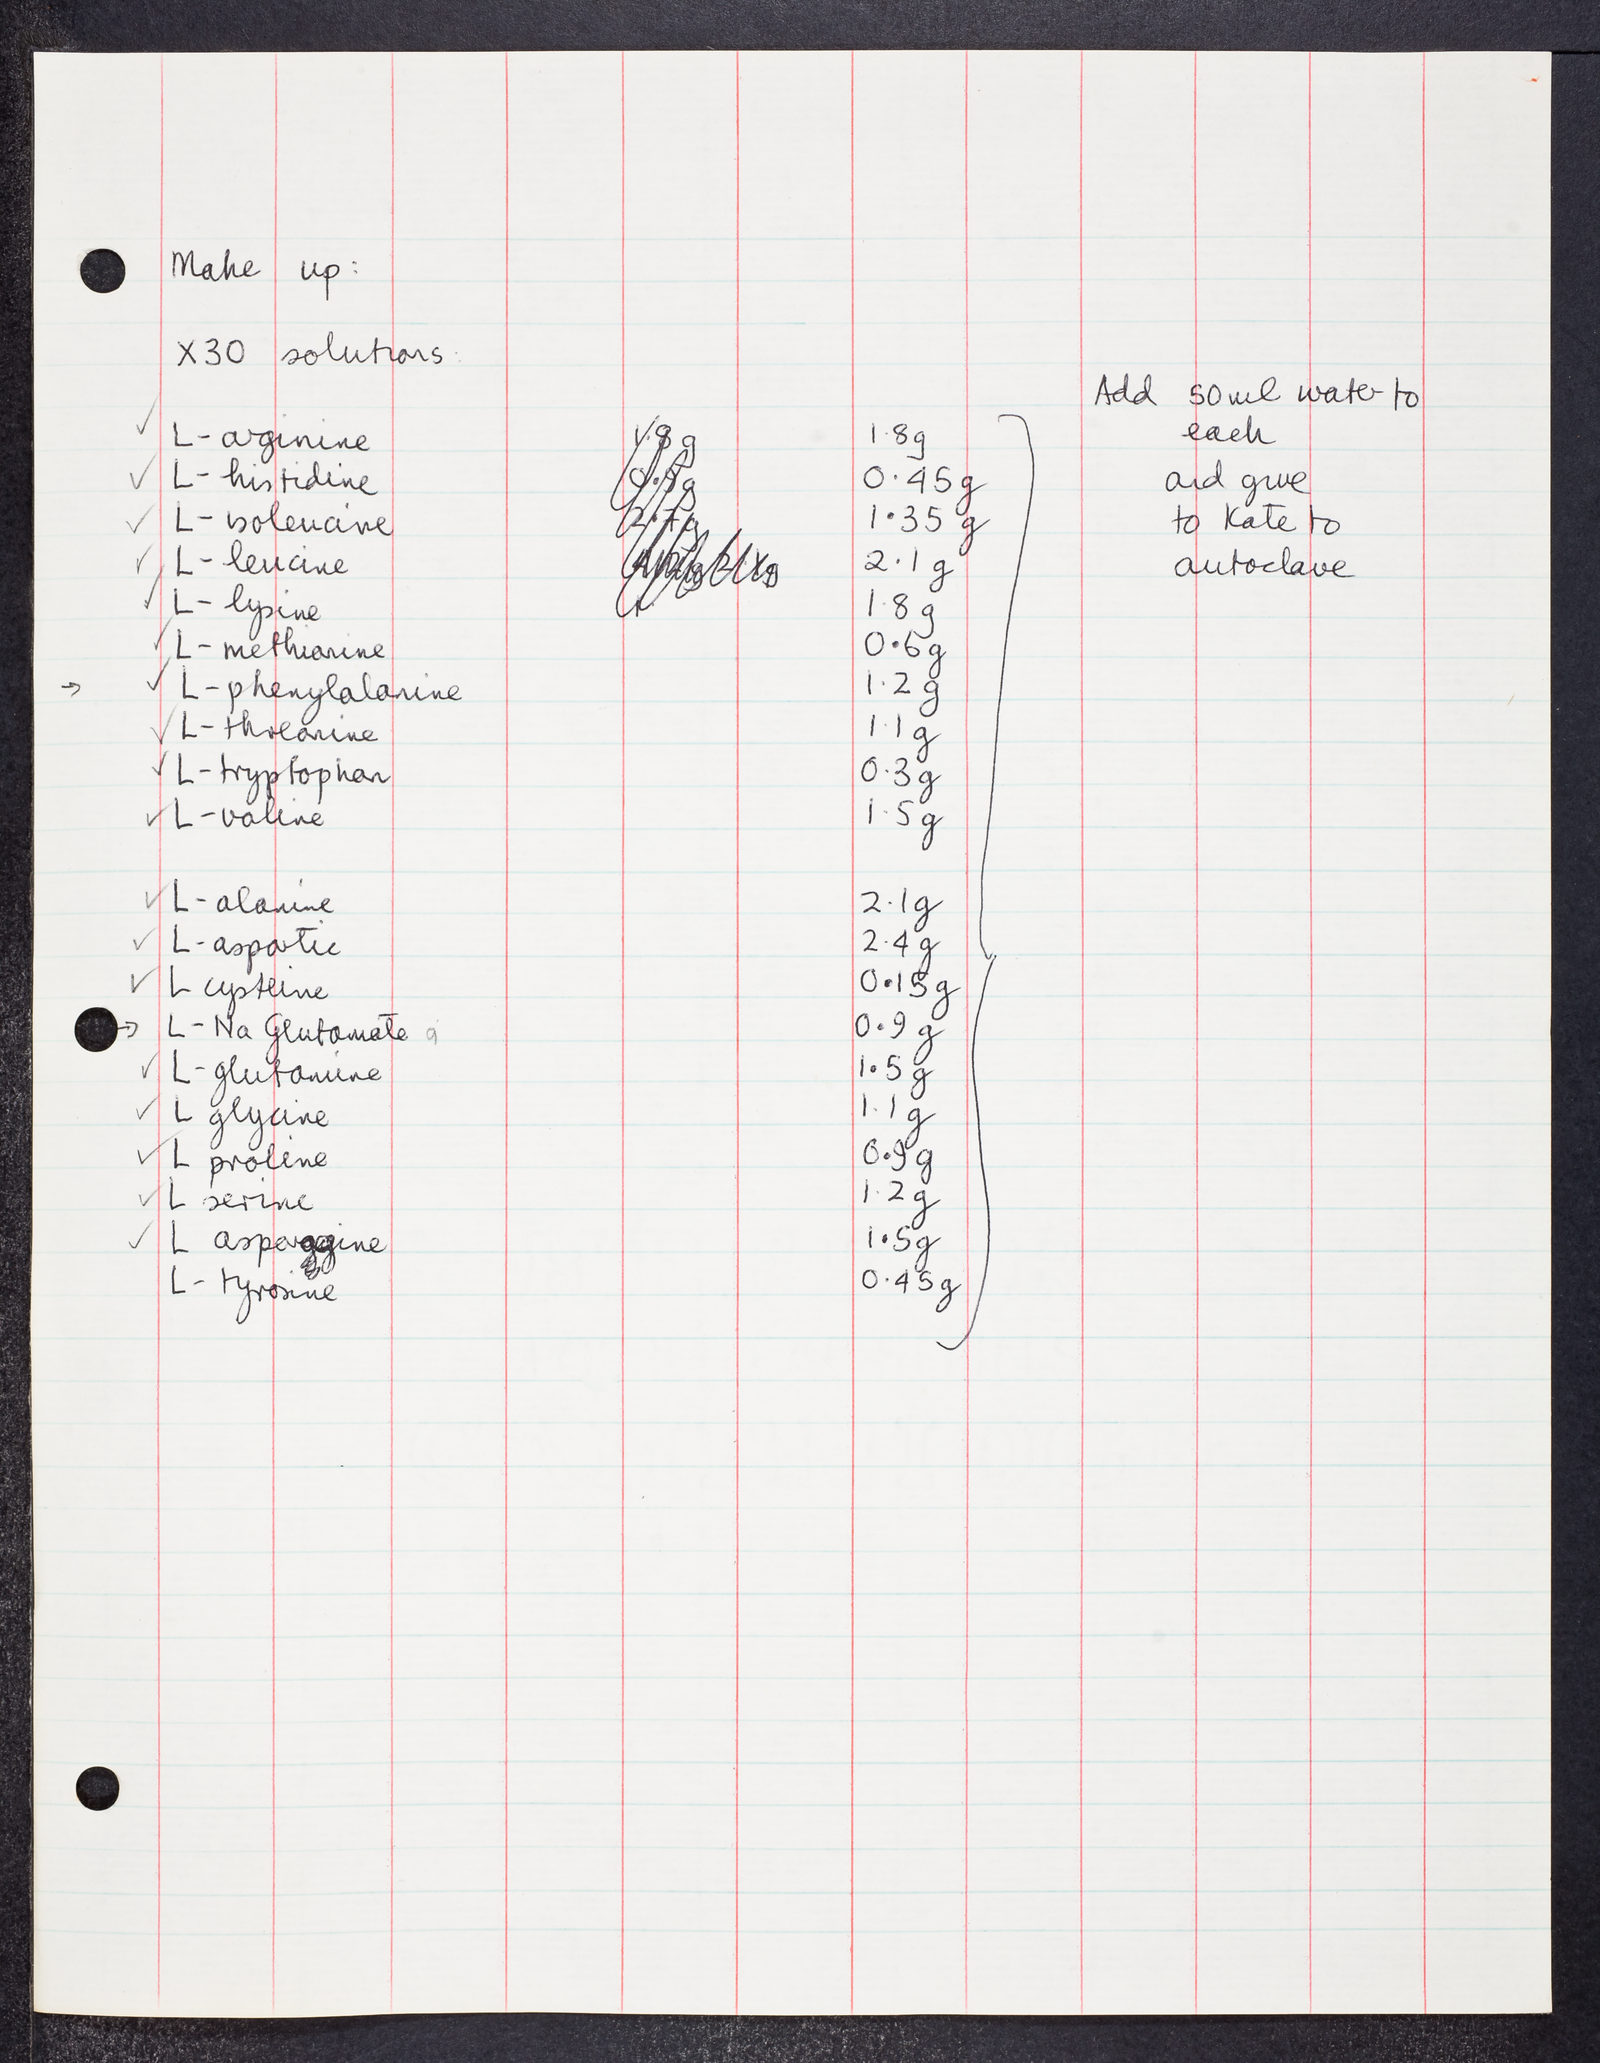 Make up:
X30 solutions:
Add 50ml water to
✓ L-arginine 1.8g 1.8g each
✓ L-histidine 0.45g and give
✓ L-isoleucine 1.35g to Kate to
✓ L-leucine 2.1g autoclave
✓ L-lysine 1.8g
✓ L-methionine 0.6g
→ ✓ L-phenylalanine 1.2g
✓ L-threonine 1.1g
✓ L-tryptophan 0.3g
✓ L-valine 1.5g
✓ L-alanine 2.1g
✓ L-aspartic 2.4g
✓ L cysteine 0.15g
→ L-Na Glutamate 0.9g
✓ L-glutamine 1.5g
✓ L glycine 1.1g
✓ L proline 0.9g
✓ L serine 1.2g
✓ L asperggine 1.5g
L-tyrosine 0.45g